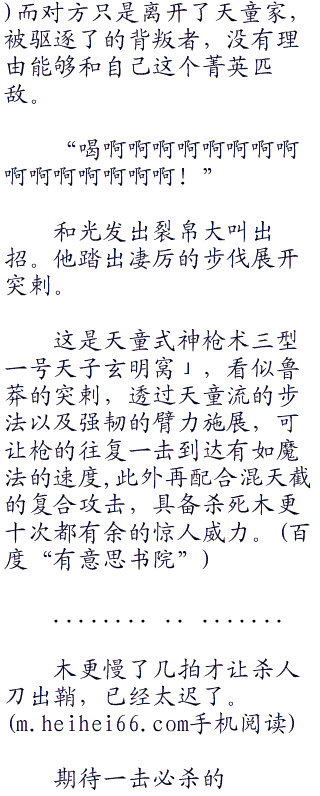 )而对方只是离开了天童家，
被驱逐了的背叛者，没有理
由能够和自己这个菁英匹
敌。
“喝啊啊啊啊啊啊啊啊
啊啊啊啊啊啊啊！”
和光发出裂帛大叫出
招。他踏出凄厉的步伐展开
突刺。
这是天童式神枪术三型
一号天子玄明窝」，看似鲁
莽的突刺，透过天童流的步
法以及强韧的臂力施展，可
让枪的往复一击到达有如魔
法的速度,此外再配合混天截
的复合攻击，具备杀死木更
十次都有余的惊人威力。(百
度“有意思书院”)
........ .. .......
木更慢了几拍才让杀人
刀出鞘，已经太迟了。
(m.heihei66.com手机阅读)
期待一击必杀的